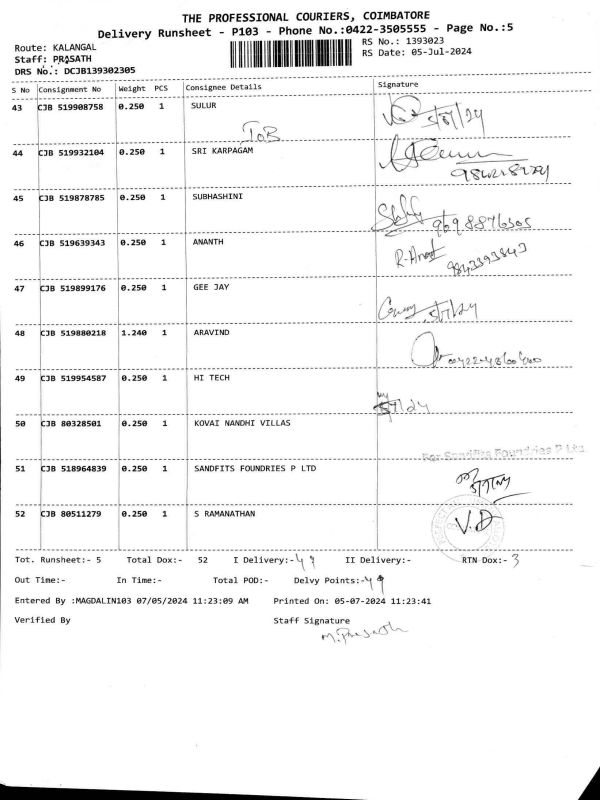 THE PROFESSIONAL COURIERS, COIMBATORE
Delivery Runsheet - P103 - Phone No.:0422-3505555 - Page No.:5
Route: KALANGAL
RS No.: 1393023
Staff: PRASATH
RS Date: 05-Jul-2024
DRS No.: DCJB139302305
S No Consignment No Weight PCS Consignee Details Signature
43 CJB 519908758 0.250 1 SULUR
5/7/24
44 CJB 519932104 0.250 1 SRI KARPAGAM
45 CJB 519878785 0.250 1 SUBHASHINI
9698876505
46 CJB 519639343 0.250 1 ANANTH
9843393843
47 CJB 519899176 0.250 1 GEE JAY
5/7/24
48 CJB 519880218 1.240 1 ARAVIND
49 CJB 519954587 0.250 1 HI TECH
50 CJB 80328501 0.250 1 KOVAI NANDHI VILLAS
For Sandfits Foundries P Ltd.
51 CJB 518964839 0.250 1 SANDFITS FOUNDRIES P LTD
52 CJB 80511279 0.250 1 S RAMANATHAN
V.D
Tot. Runsheet:- 5 Total Dox:- 52 I Delivery:-49 II Delivery:- RTN Dox:- 3
Out Time:- In Time:- Total POD:- Delvy Points:-49
Entered By :MAGDALIN103 07/05/2024 11:23:09 AM Printed On: 05-07-2024 11:23:41
Verified By Staff Signature
M.Prasath